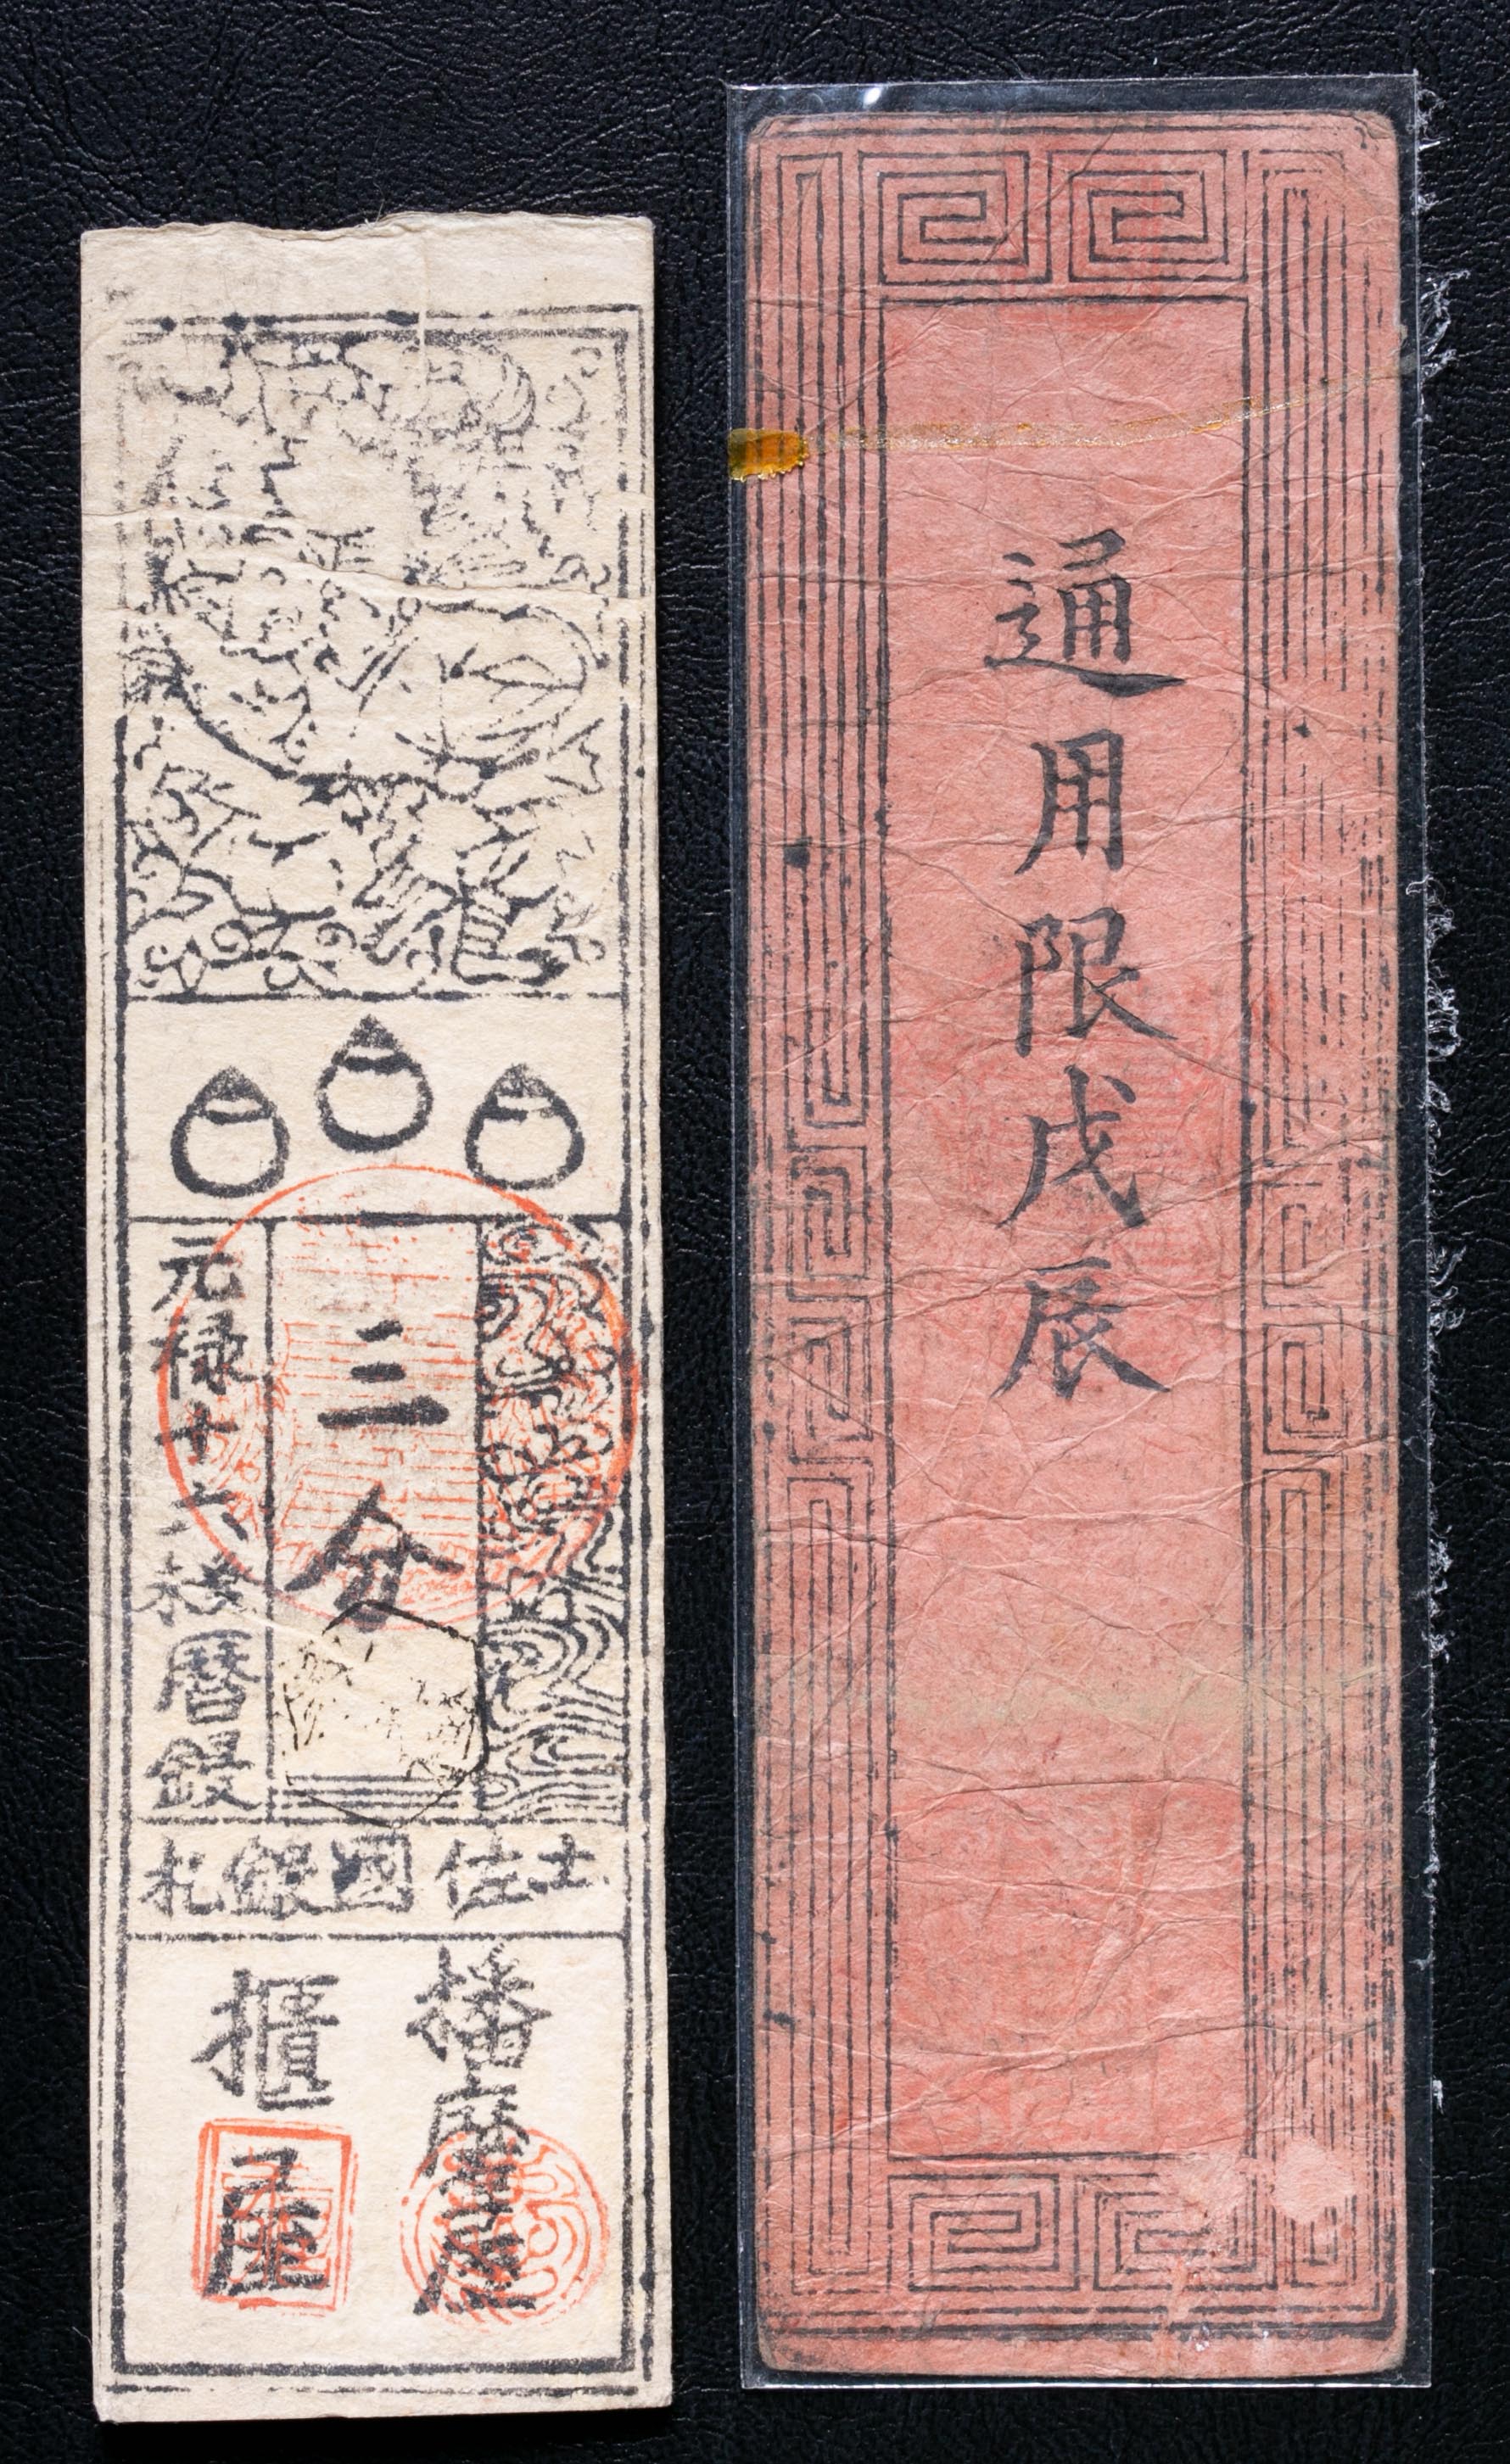 三分
元禄十六稔曆銀
土佐國銀札
播磨屋
櫃屋
通用限戊辰